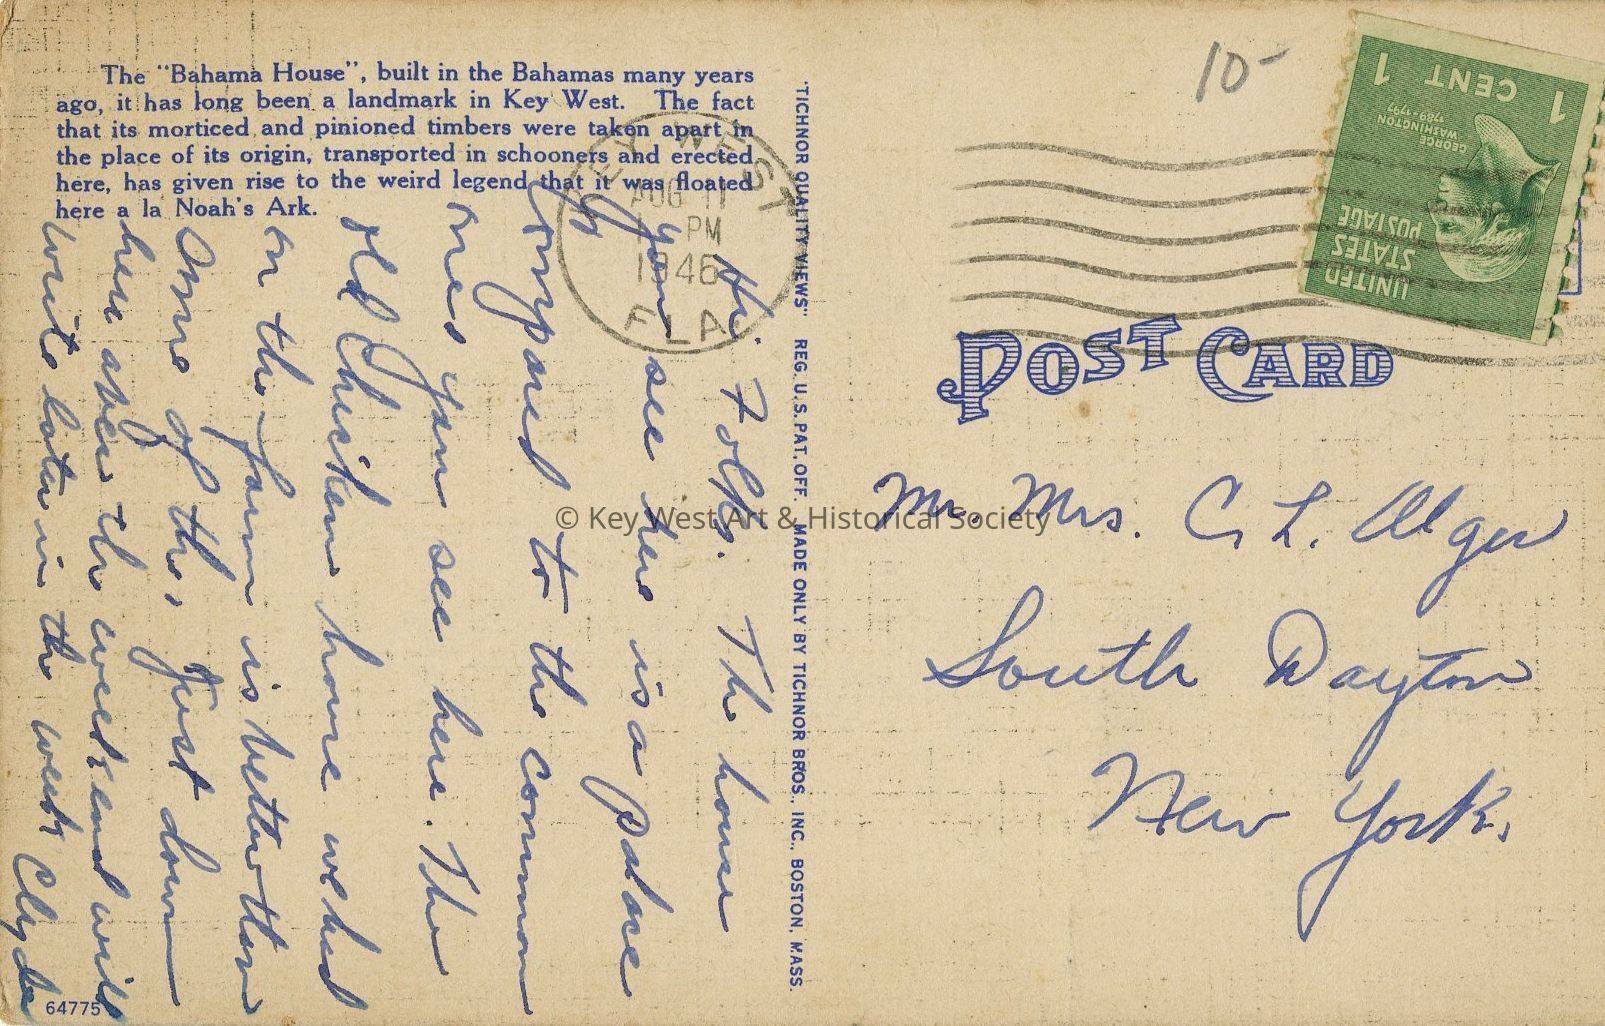 The "Bahama House", built in the Bahamas many years
ago, it has long been a landmark in Key West. The fact
that its morticed and pinioned timbers were taken apart in
the place of its origin, transported in schooners and erected
here, has given rise to the weird legend that it was floated
here a la Noah's Ark.
Hi. Folks. The house
you see here is a palace
compared to the common
ones you see here. The
old Chicken house we had
on the farm is better than
some of the. Just down
here over the weekend will
write later in the week Clyde
64775
"TICHNOR QUALITY VIEWS" REG. U. S. PAT. OFF. MADE ONLY BY TICHNOR BROS., INC., BOSTON, MASS.
KEY WEST
AUG 11
PM
1946
FLA
10-
1 CENT 1
GEORGE
WASHINGTON
1789-1797
UNITED
STATES
POSTAGE
POST CARD
Mr. Mrs. C. L. Alger
South Dayton
New York.
© Key West Art & Historical Society